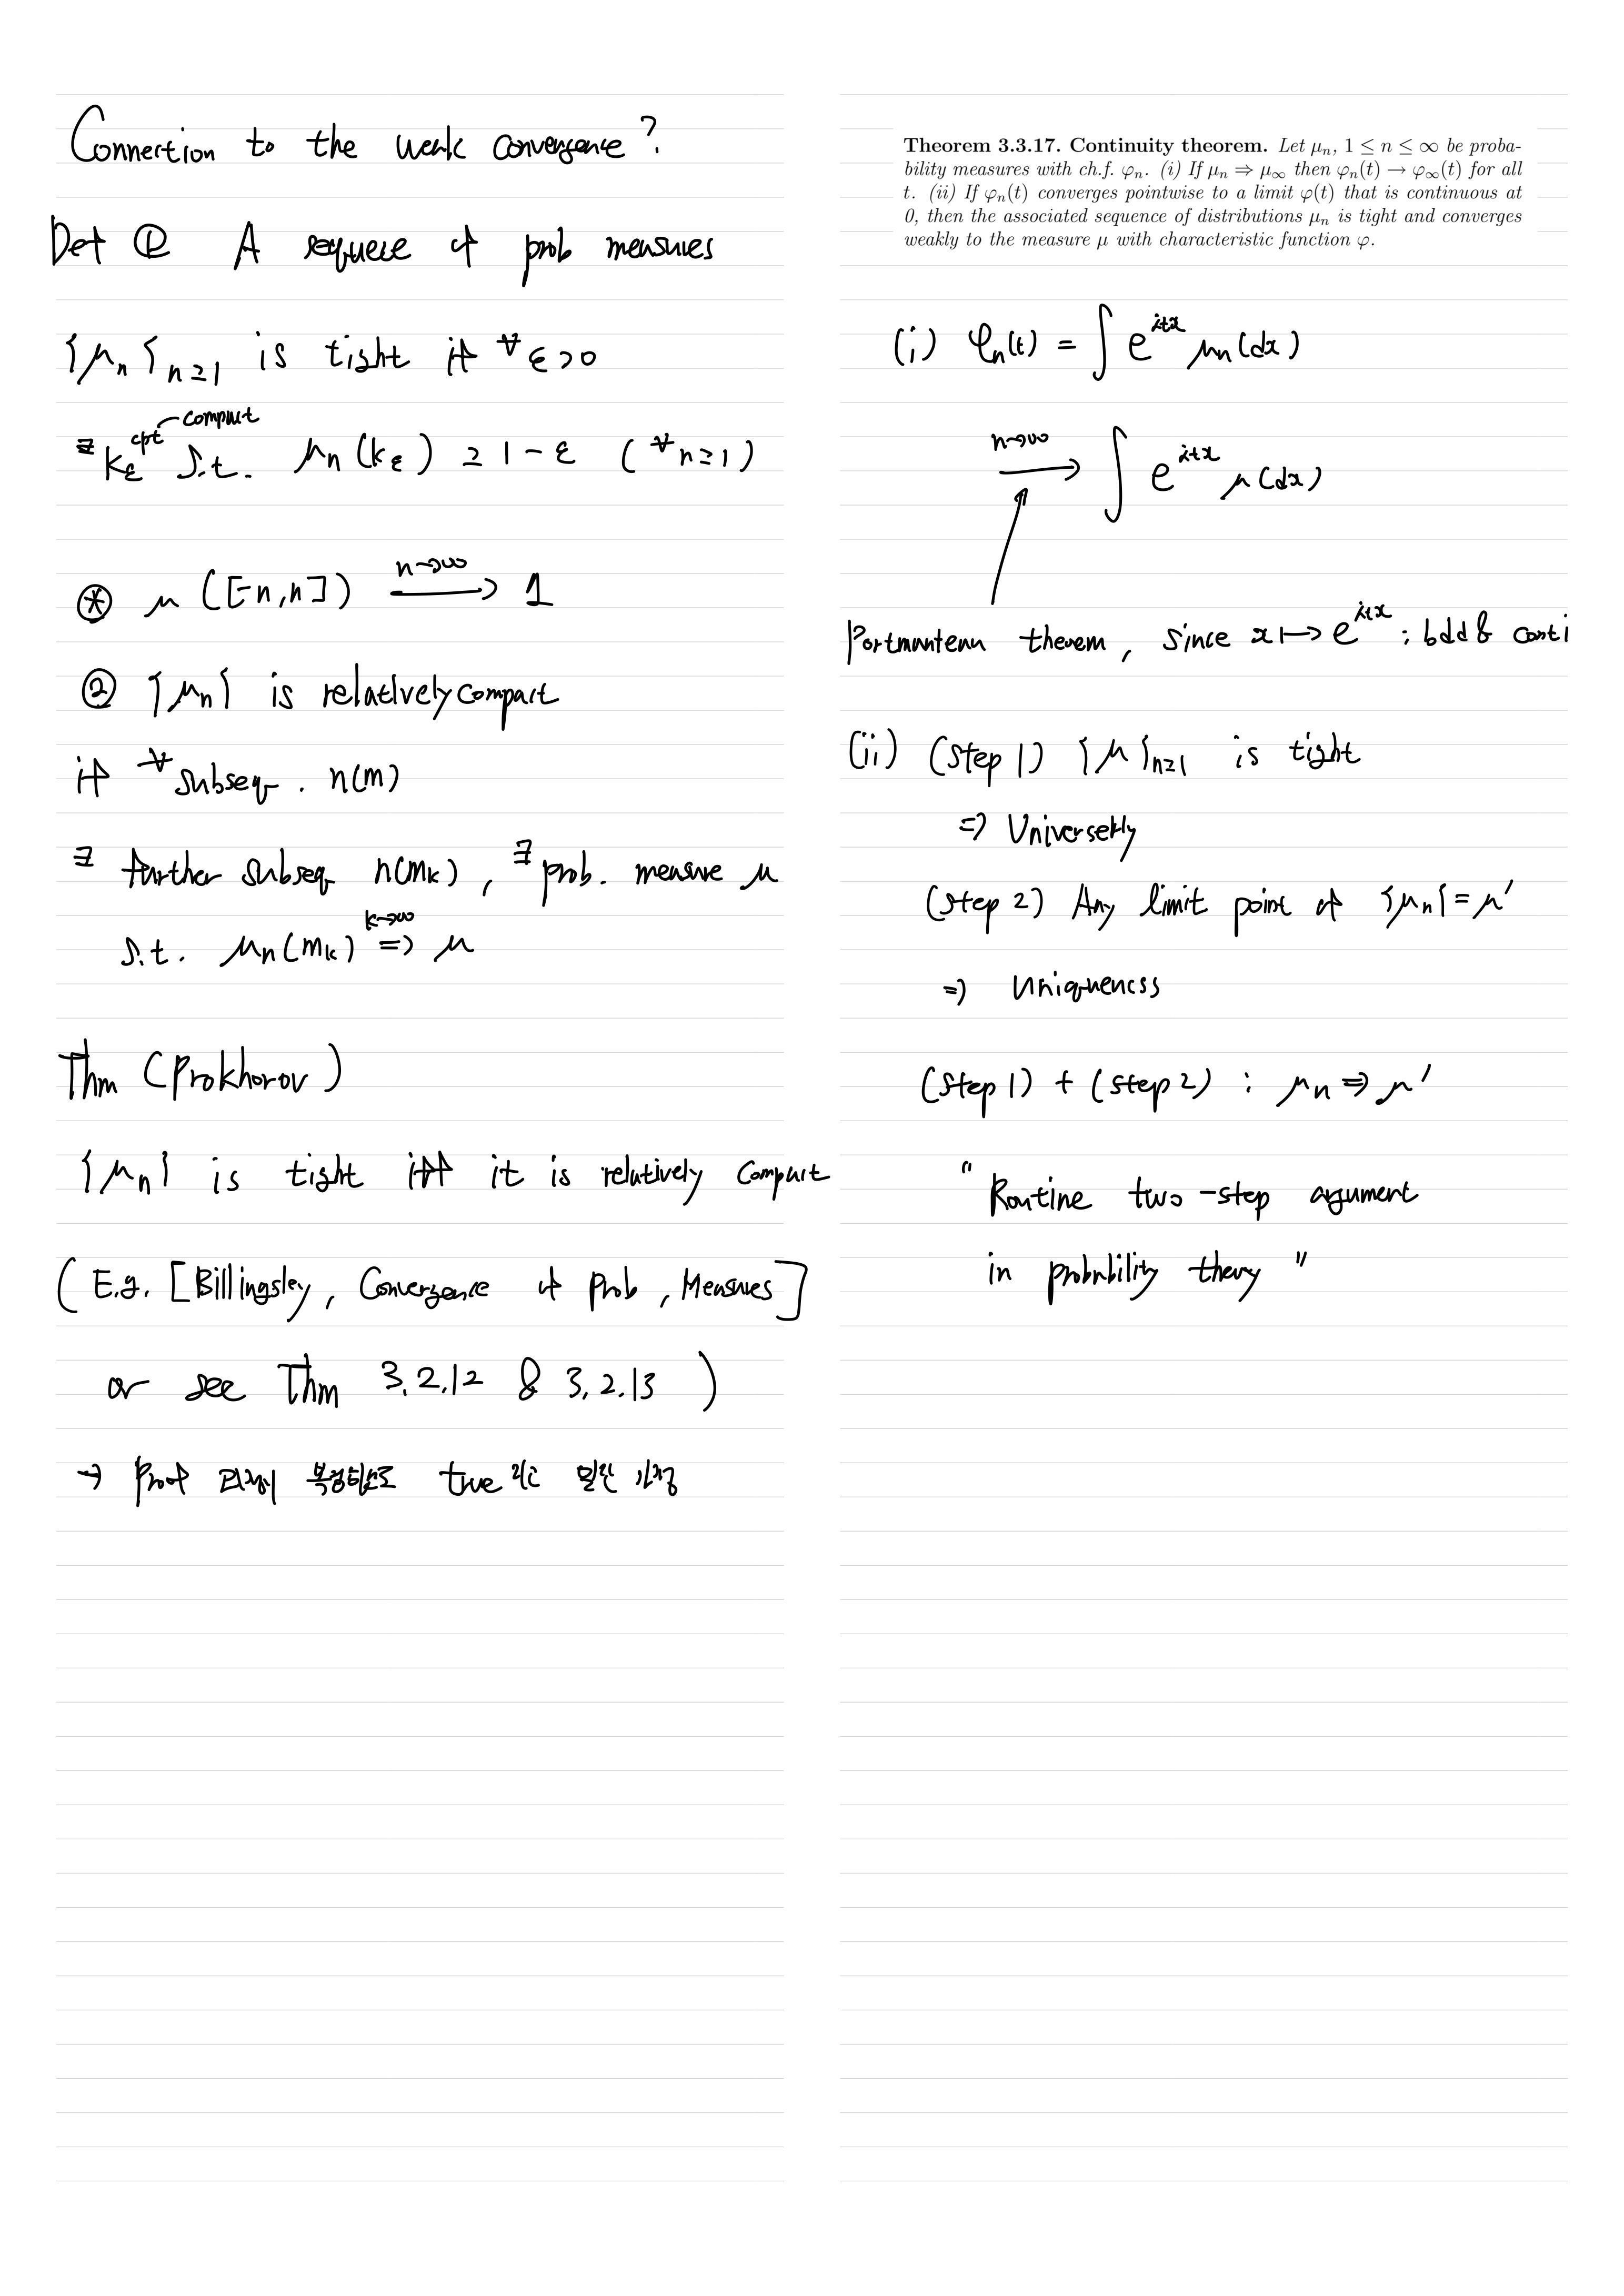 Connection to the weak convergence?
Def ① A sequece of prob measures
{μₙ}ₙ≥₁ is tight if ∀ε>0
compact
∃Kε^cpt s.t. μₙ(Kε) ≥ 1-ε (∀n≥1)
⊛ μ([-n,n]) →(n→∞) 1
② {μₙ} is relatively compact
if ∀subseq. n(m)
∃ further subseq n(mₖ), ∃prob. measure μ
s.t. μₙ(mₖ) ⇒(k→∞) μ
Thm (Prokhorov)
{μₙ} is tight iff it is relatively compact
(E.g. [Billingsley, Convergence of Prob, Measures]
or see Thm 3.2.12 & 3.2.13 )
→ Proof 과정이 복잡할도 true 라고 일단 가정
Theorem 3.3.17. Continuity theorem. Let μₙ, 1 ≤ n ≤ ∞ be proba-
bility measures with ch.f. φₙ. (i) If μₙ ⇒ μ∞ then φₙ(t) → φ∞(t) for all
t. (ii) If φₙ(t) converges pointwise to a limit φ(t) that is continuous at
0, then the associated sequence of distributions μₙ is tight and converges
weakly to the measure μ with characteristic function φ.
(i) φₙ(t) = ∫ e^{itx} μₙ(dx)
→(n→∞) ∫ e^{itx} μ(dx)
Portmanteau theorem, since x ↦ e^{itx} : bdd & conti
(ii) (step 1) {μ}ₙ≥₁ is tight
⇒
(step 2) Any limit point of {μₙ} = μ'
⇒ Uniqueness
(step 1) + (step 2) : μₙ ⇒ μ'
" Routine two-step argument
in probability theory "